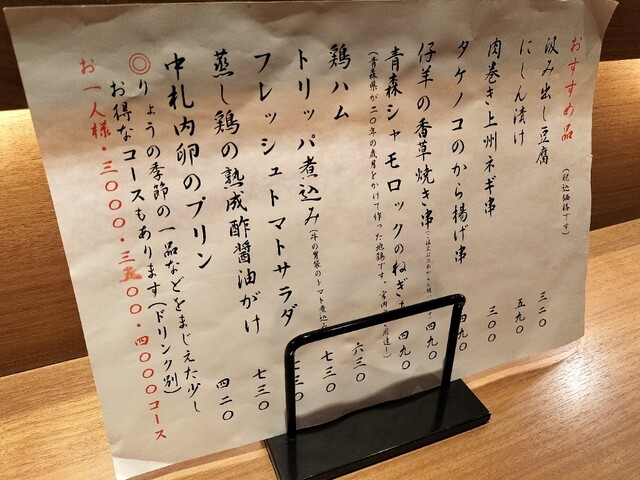 おすすめ品
(税込価格です)
汲み出し豆腐 三二〇
にしん漬け 五九〇
肉巻き上州ネギ串 三〇〇
タケノコのから揚げ串 四九〇
仔羊の香草焼き串 四九〇
青森シャモロックのねぎ 四九〇
(青森県が二〇年の歳月をかけて作った地鶏です。宮内 用達!)
鶏ハム 六三〇
トリッパ煮込み(牛の胃袋のトマト煮込み 七三〇
フレッシュトマトサラダ 三〇
蒸し鶏の熟成酢醤油がけ 七三〇
中札内卵のプリン 四二〇
◎りょうの季節の一品などをまじえた少し
お得なコースもあります(ドリンク別)
お一人様・三〇〇〇・三五〇〇・四〇〇〇コース